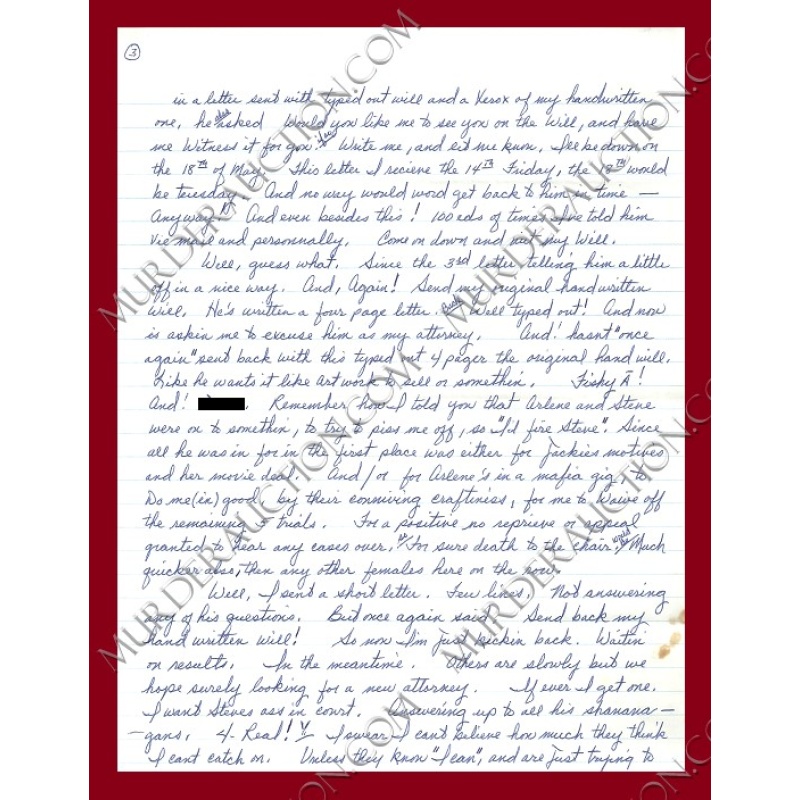 3
in a letter sent with typed out will and a Xerox of my handwritten
one, he also asked Would you like me to see you on the Will, and have
me Witness it for you. Write me, and let me know. I'll be down on
the 18TH of May. This letter I recieve the 14TH Friday, the 18TH would
be tuesday. And no way would word get back to him in time —
Anyway. And even besides this! 100eds of times I've told him
Vie mail and personnally, Come on down and my Will.
Well, guess what. Since the 3rd letter telling him a little
off in a nice way. And, Again! Send my original handwritten
Will. He's written a four page letter. Back Well typed out! And now
is askin me to excuse him as my attorney. And! hasnt "once
again" sent back with this typed out 4 pager the original hand will.
Like he wants it like Art work to sell or somethin. Fishy Ā!
And! Remember how I told you that Arlene and Steve
were on to somethin, to try to piss me off, so "I'd fire Steve". Since
all he was in for in the first place was either for Jackies motives
and her movie deal. And/or for Arlene's in a mafia gig, to
Do me (in) good, by their conniving craftiness, for me to Waive off
the remaining 5 trials. For a positive no reprieve or appeal
granted to hear any cases over. For sure death to the chair. Much
quicker also, then any other females here on the row.
Well, I sent a short letter. Few lines. Not answering
any of his questions. But once again said. Send back my
hand written will! So now I'm just kickin back. Waitin
on results. In the meantime. Others are slowly but we
hope surely looking for a new attorney. If ever I get one.
I want Steves ass in court. Answering up to all his shanana–
–gans. 4-Real! I swear I cant believe how much they think
I cant catch on. Unless they know "I can", and are just trying to
MURDERAUCTION.COM